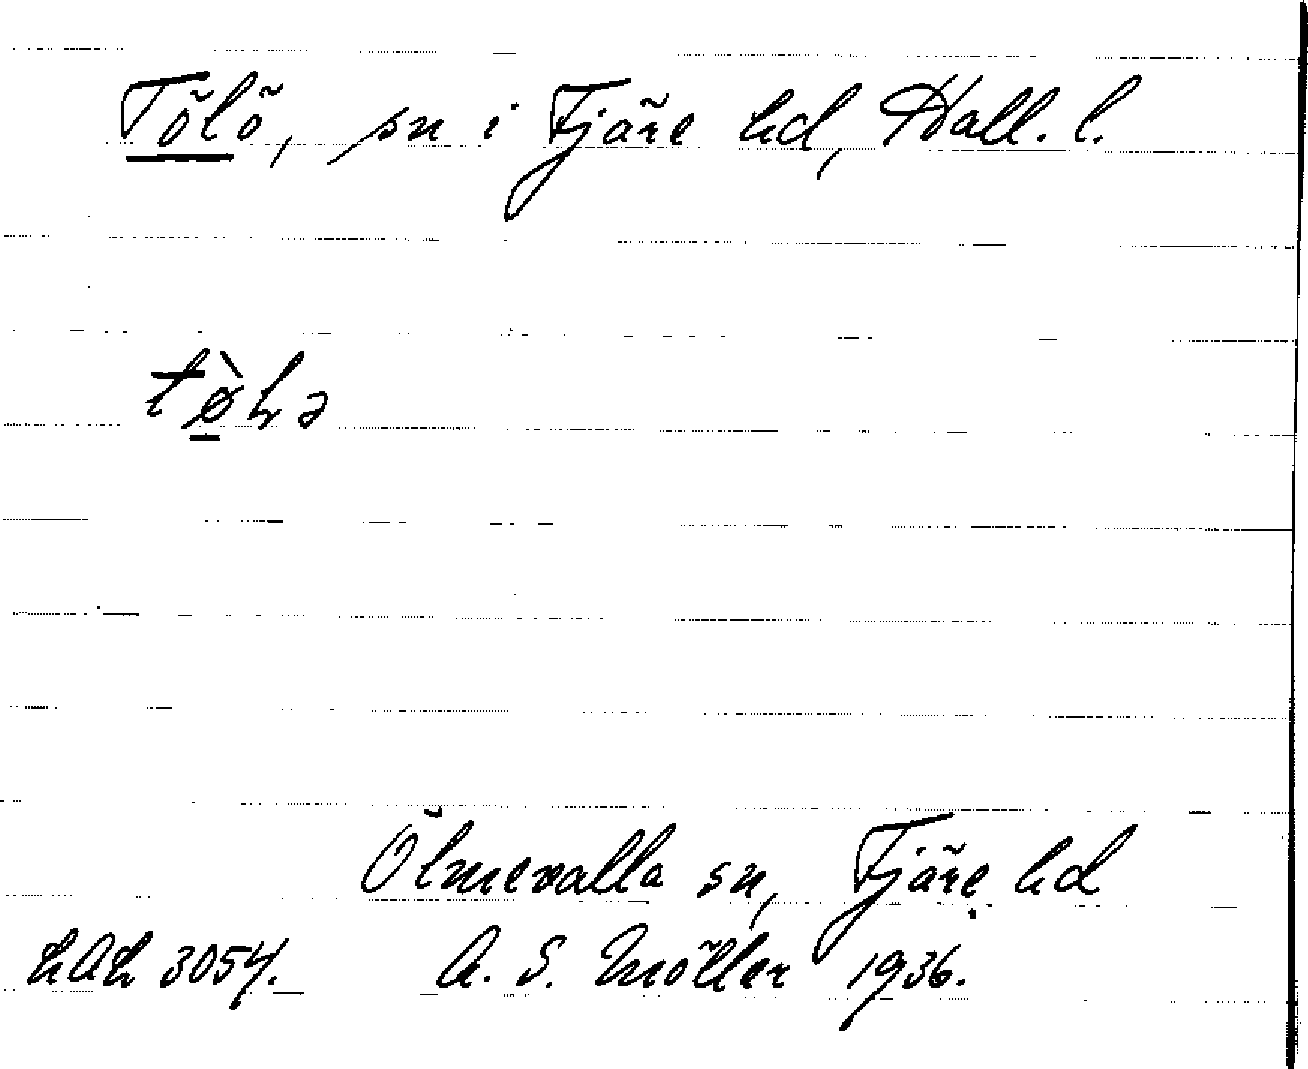 Tölö, sn i Fjäre hd, Hall. l.
tø̀lə
Ölmevalla sn, Fjäre hd
LAL 3054. A. S. Möller 1936.